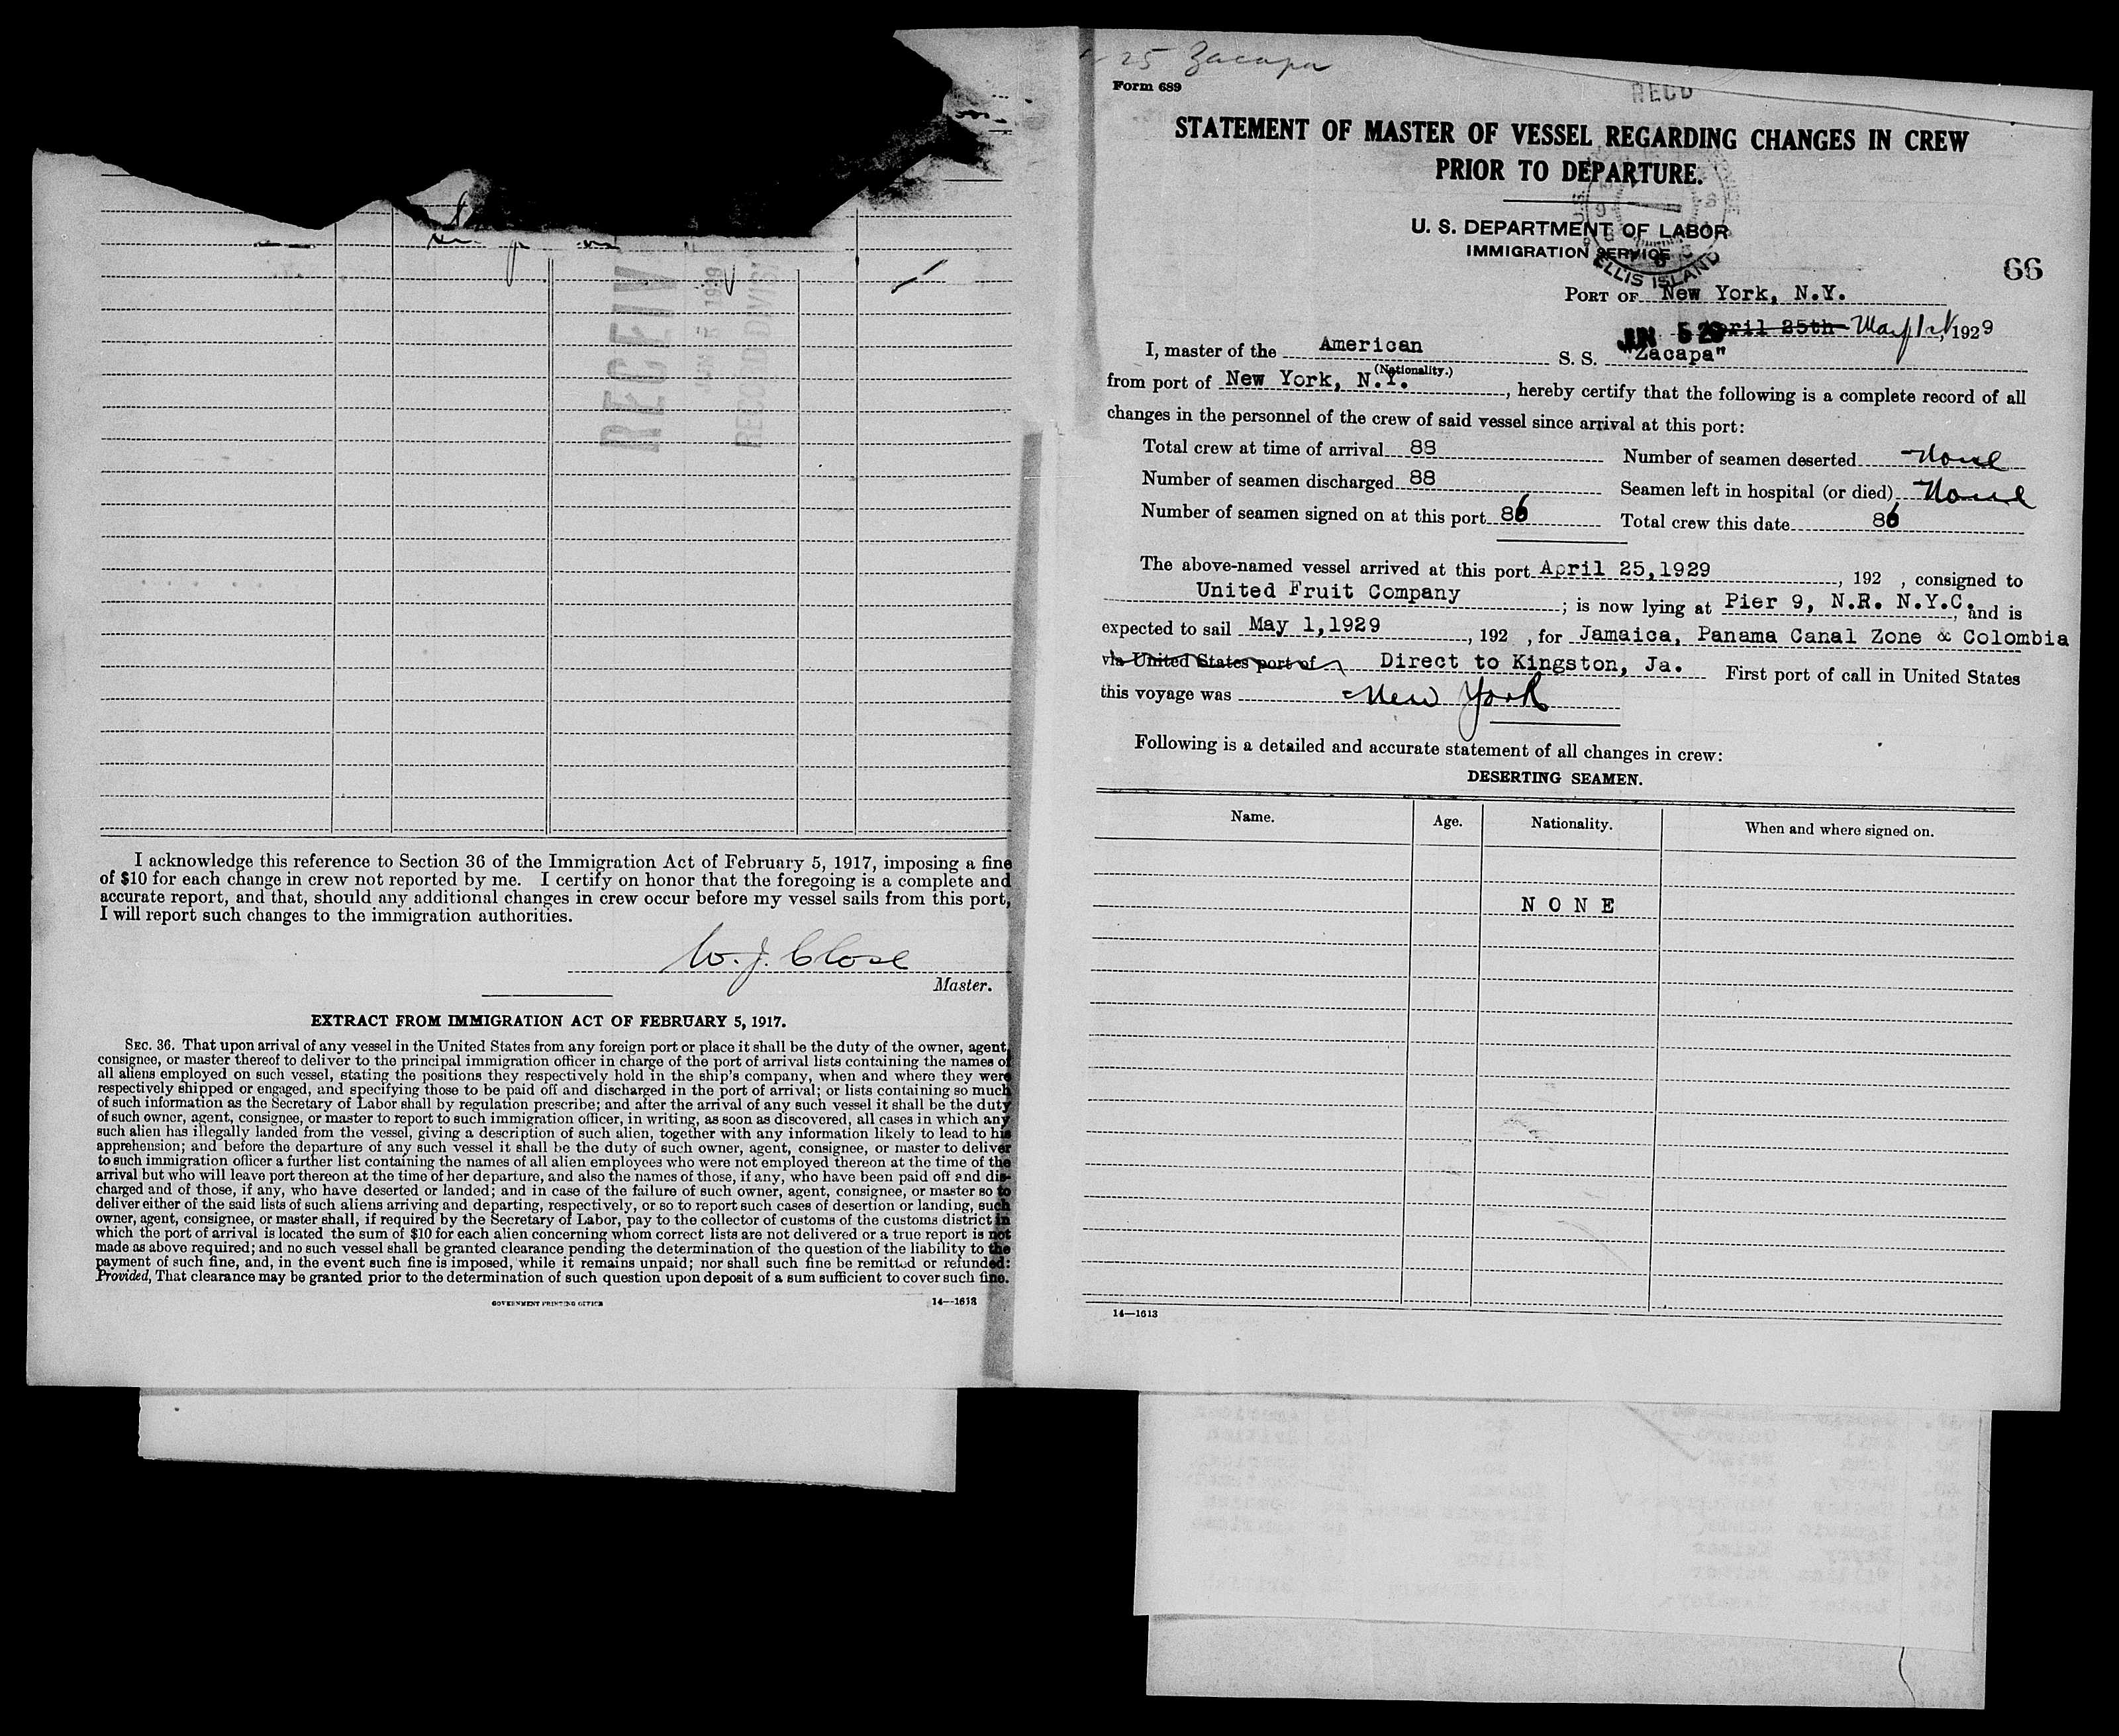 RECEIV
1929
RECORD DIVISI
I acknowledge this reference to Section 36 of the Immigration Act of February 5, 1917, imposing a fine
of $10 for each change in crew not reported by me. I certify on honor that the foregoing is a complete and
accurate report, and that, should any additional changes in crew occur before my vessel sails from this port,
I will report such changes to the immigration authorities.
W. J. Close
Master.
EXTRACT FROM IMMIGRATION ACT OF FEBRUARY 5, 1917.
SEC. 36. That upon arrival of any vessel in the United States from any foreign port or place it shall be the duty of the owner, agent,
consignee, or master thereof to deliver to the principal immigration officer in charge of the port of arrival lists containing the names of
all aliens employed on such vessel, stating the positions they respectively hold in the ship's company, when and where they were
respectively shipped or engaged, and specifying those to be paid off and discharged in the port of arrival; or lists containing so much
of such information as the Secretary of Labor shall by regulation prescribe; and after the arrival of any such vessel it shall be the duty
of such owner, agent, consignee, or master to report to such immigration officer, in writing, as soon as discovered, all cases in which any
such alien has illegally landed from the vessel, giving a description of such alien, together with any information likely to lead to his
apprehension; and before the departure of any such vessel it shall be the duty of such owner, agent, consignee, or master to deliver
to such immigration officer a further list containing the names of all alien employees who were not employed thereon at the time of the
arrival but who will leave port thereon at the time of her departure, and also the names of those, if any, who have been paid off and dis-
charged and of those, if any, who have deserted or landed; and in case of the failure of such owner, agent, consignee, or master so to
deliver either of the said lists of such aliens arriving and departing, respectively, or so to report such cases of desertion or landing, such
owner, agent, consignee, or master shall, if required by the Secretary of Labor, pay to the collector of customs of the customs district in
which the port of arrival is located the sum of $10 for each alien concerning whom correct lists are not delivered or a true report is not
made as above required; and no such vessel shall be granted clearance pending the determination of the question of the liability to the
payment of such fine, and, in the event such fine is imposed, while it remains unpaid; nor shall such fine be remitted or refunded:
Provided, That clearance may be granted prior to the determination of such question upon deposit of a sum sufficient to cover such fine.
GOVERNMENT PRINTING OFFICE 14—1613
25 Zacapa
Form 689
RECD
STATEMENT OF MASTER OF VESSEL REGARDING CHANGES IN CREW
PRIOR TO DEPARTURE.
U. S. DEPARTMENT OF LABOR
IMMIGRATION SERVICE
ELLIS ISLAND
66
PORT OF New York, N.Y.
JUN 5 29 ril 25th May 1st, 1929
I, master of the American S. S. "Zacapa"
(Nationality.)
from port of New York, N.Y., hereby certify that the following is a complete record of all
changes in the personnel of the crew of said vessel since arrival at this port:
Total crew at time of arrival 88 Number of seamen deserted None
Number of seamen discharged 88 Seamen left in hospital (or died) None
Number of seamen signed on at this port 86 Total crew this date 86
The above-named vessel arrived at this port April 25,1929, 192 , consigned to
United Fruit Company; is now lying at Pier 9, N.R. N.Y.C., and is
expected to sail May 1,1929, 192 , for Jamaica, Panama Canal Zone & Colombia
via United States port of Direct to Kingston, Ja. First port of call in United States
this voyage was New York
Following is a detailed and accurate statement of all changes in crew:
DESERTING SEAMEN.
Name. Age. Nationality. When and where signed on.
NONE
14—1613